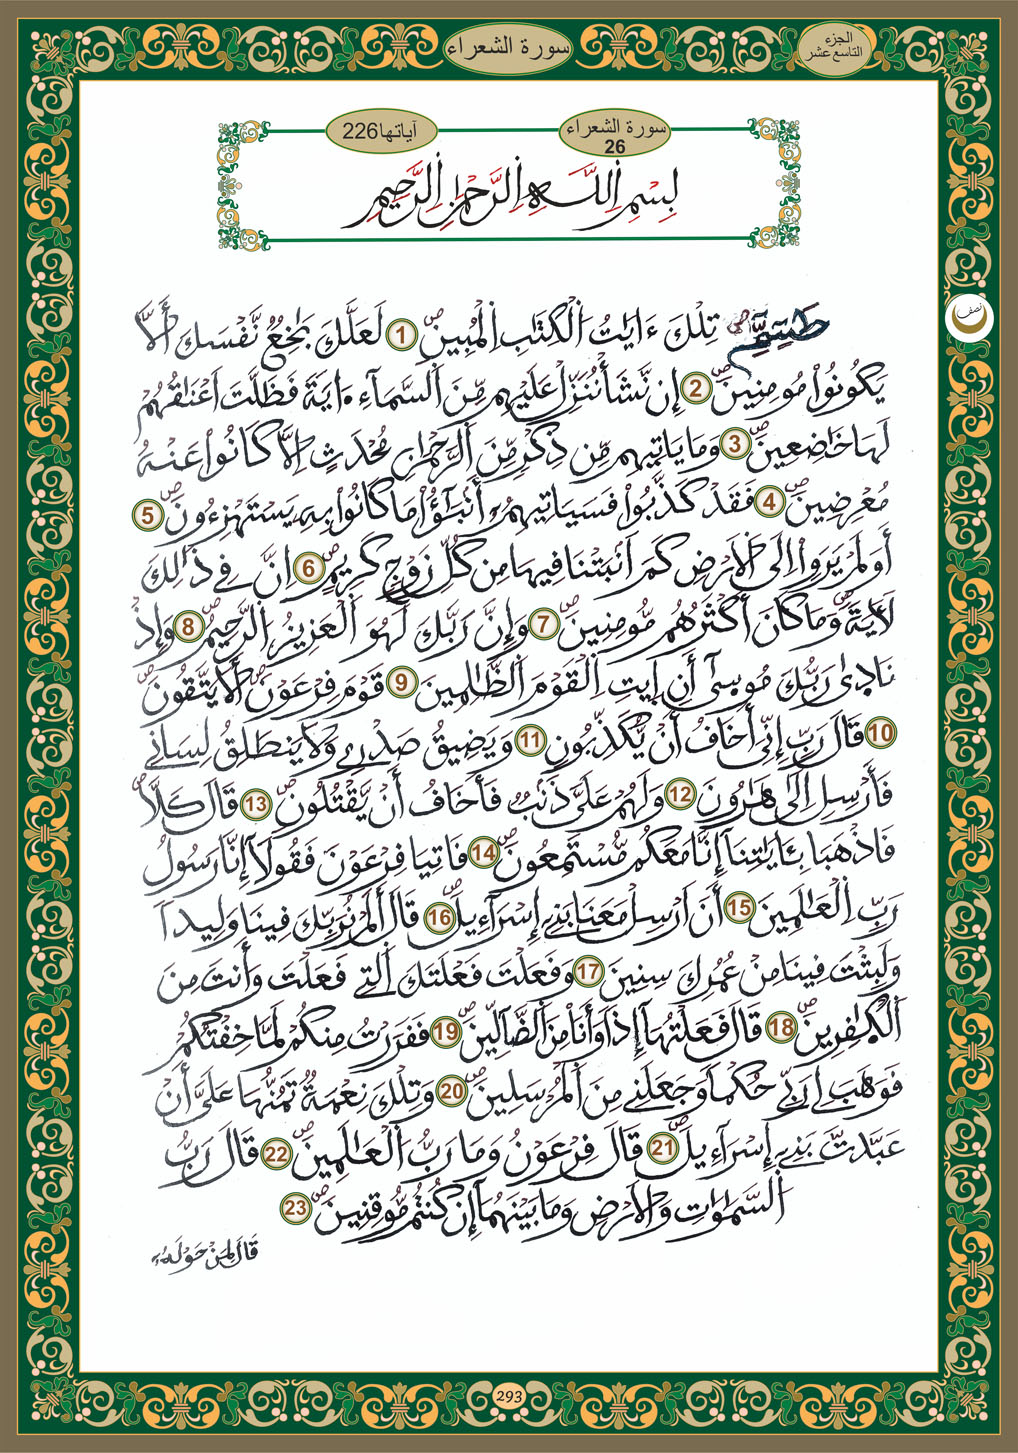 سورة الشعراء
الجزء
التاسع عشر
سورة الشعراء
26
آياتها226
بِسْمِ اِ۬للَّهِ اِ۬لرَّحْمَٰنِ اِ۬لرَّحِيمِ
نصف
طَسِٓمِّٓ صۖ تِلْكَ ءَايَٰتُ اُ۬لْكِتَٰبِ اِ۬لْمُبِينِۖ 1 لَعَلَّكَ بَٰخِعٞ نَّفْسَكَ أَلَّا
يَكُونُواْ مُومِنِينَۖ 2 إِن نَّشَأْ نُنَزِّلْ عَلَيْهِم مِّنَ اَ۬لسَّمَآءِ ءَايَةٗ فَظَلَّتَ اَعْنَٰقُهُمْ
لَهَا خَٰضِعِينَۖ 3 وَمَا يَاتِيهِم مِّن ذِكْرٖ مِّنَ اَ۬لرَّحْمَٰنِ مُحْدَثٍ اِلَّا كَانُواْ عَنْهُ
مُعْرِضِينَۖ 4 فَقَدْ كَذَّبُواْ فَسَيَاتِيهِمُۥٓ أَنۢبَٰٓؤُاْ مَا كَانُواْ بِهِۦ يَسْتَهْزِءُونَۖ 5
أَوَلَمْ يَرَوِاْ اِلَى اَ۬لَارْضِ كَمَ اَنۢبَتْنَا فِيهَا مِن كُلِّ زَوْجٖ كَرِيمٍۖ 6 اِنَّ فِے ذَٰلِكَ
لَأٓيَةٗۖ وَمَا كَانَ أَكْثَرُهُم مُّومِنِينَۖ 7 وَإِنَّ رَبَّكَ لَهُوَ اَ۬لْعَزِيزُ اُ۬لرَّحِيمُۖ 8 وَإِذْ
نَادَىٰ رَبُّكَ مُوسَىٰٓ أَنِ اِ۪يتِ اِ۬لْقَوْمَ اَ۬لظَّٰلِمِينَ 9 قَوْمَ فِرْعَوْنَۖ أَلَا يَتَّقُونَۖ
10 قَالَ رَبِّ إِنِّيَ أَخَافُ أَنْ يُّكَذِّبُونِ 11 وَيَضِيقُ صَدْرِے وَلَا يَنطَلِقُ لِسَانِے
فَأَرْسِلِ اِلَىٰ هَٰرُونَۖ 12 وَلَهُمْ عَلَيَّ ذَنۢبٞ فَأَخَافُ أَنْ يَّقْتُلُونِۖ 13 قَالَ كَلَّاۖ
فَاذْهَبَا بِـَٔايَٰتِنَآ إِنَّا مَعَكُم مُّسْتَمِعُونَۖ 14 فَاتِيَا فِرْعَوْنَ فَقُولَآ إِنَّا رَسُولُ
رَبِّ اِ۬لْعَٰلَمِينَۖ 15 أَنَ اَرْسِلْ مَعَنَا بَنِےٓ إِسْرَآءِيلَۖ 16 قَالَ أَلَمْ نُرَبِّكَ فِينَا وَلِيداٗ
وَلَبِثْتَ فِينَا مِنْ عُمُرِكَ سِنِينَ 17 وَفَعَلْتَ فَعْلَتَكَ اَ۬لتِے فَعَلْتَ وَأَنتَ مِنَ
اَ۬لْكٰ۪فِرِينَۖ 18 قَالَ فَعَلْتُهَآ إِذاٗ وَأَنَا مِنَ اَ۬لضَّآلِّينَۖ 19 فَفَرَرْتُ مِنكُمْ لَمَّا خِفْتُكُمْ
فَوَهَبَ لِے رَبِّے حُكْماٗ وَجَعَلَنِے مِنَ اَ۬لْمُرْسَلِينَۖ 20 وَتِلْكَ نِعْمَةٞ تَمُنُّهَا عَلَيَّ أَنْ
عَبَّدتَّ بَنِےٓ إِسْرَآءِيلَۖ 21 قَالَ فِرْعَوْنُ وَمَا رَبُّ اُ۬لْعَٰلَمِينَۖ 22 قَالَ رَبُّ
اُ۬لسَّمَٰوَٰتِ وَالَارْضِ وَمَا بَيْنَهُمَآ إِن كُنتُم مُّوقِنِينَۖ 23
قَالَ لِمَنْ حَوْلَهُۥٓ
293